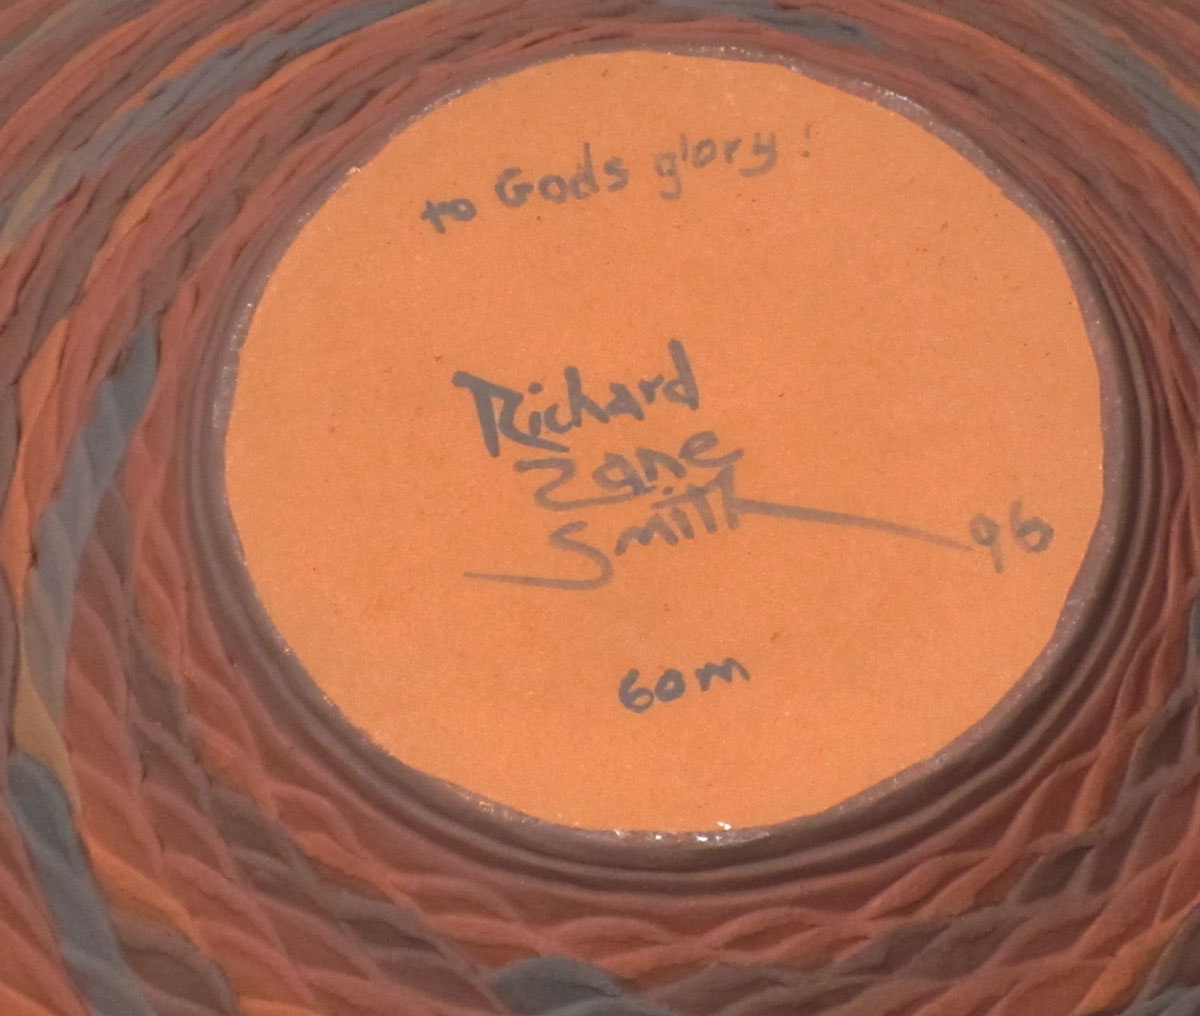 to Gods glory!
Richard
Zane
Smith 96
60m